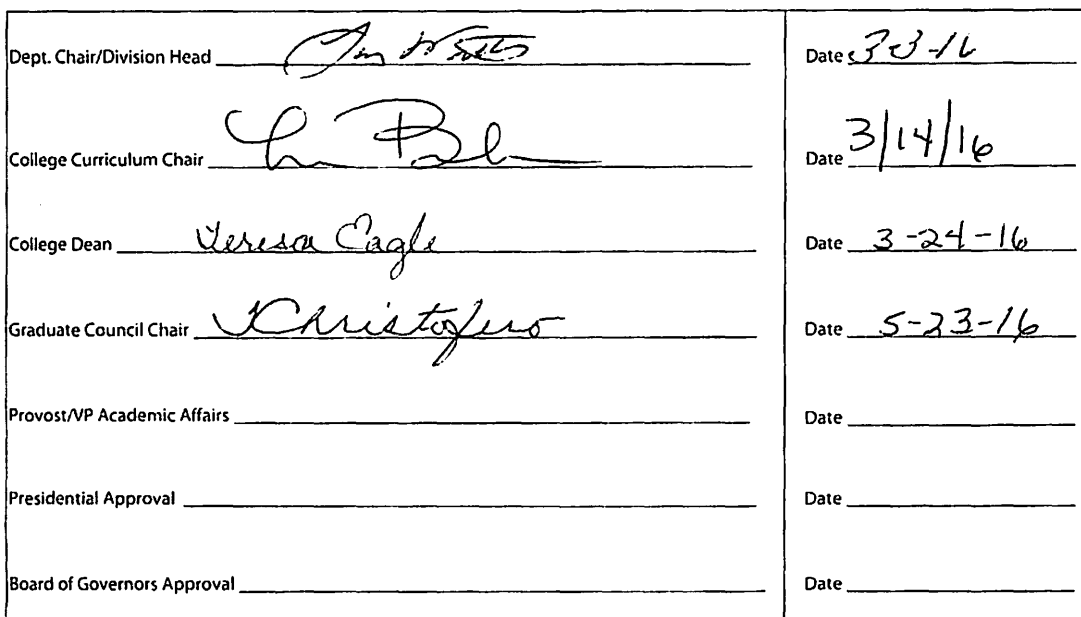 Dept. Chair/Division Head Date 3-3-16
College Curriculum Chair Date 3/14/16
College Dean Teresa Eagle Date 3-24-16
Graduate Council Chair Christofero Date 5-23-16
Provost/VP Academic Affairs Date
Presidential Approval Date
Board of Governors Approval Date